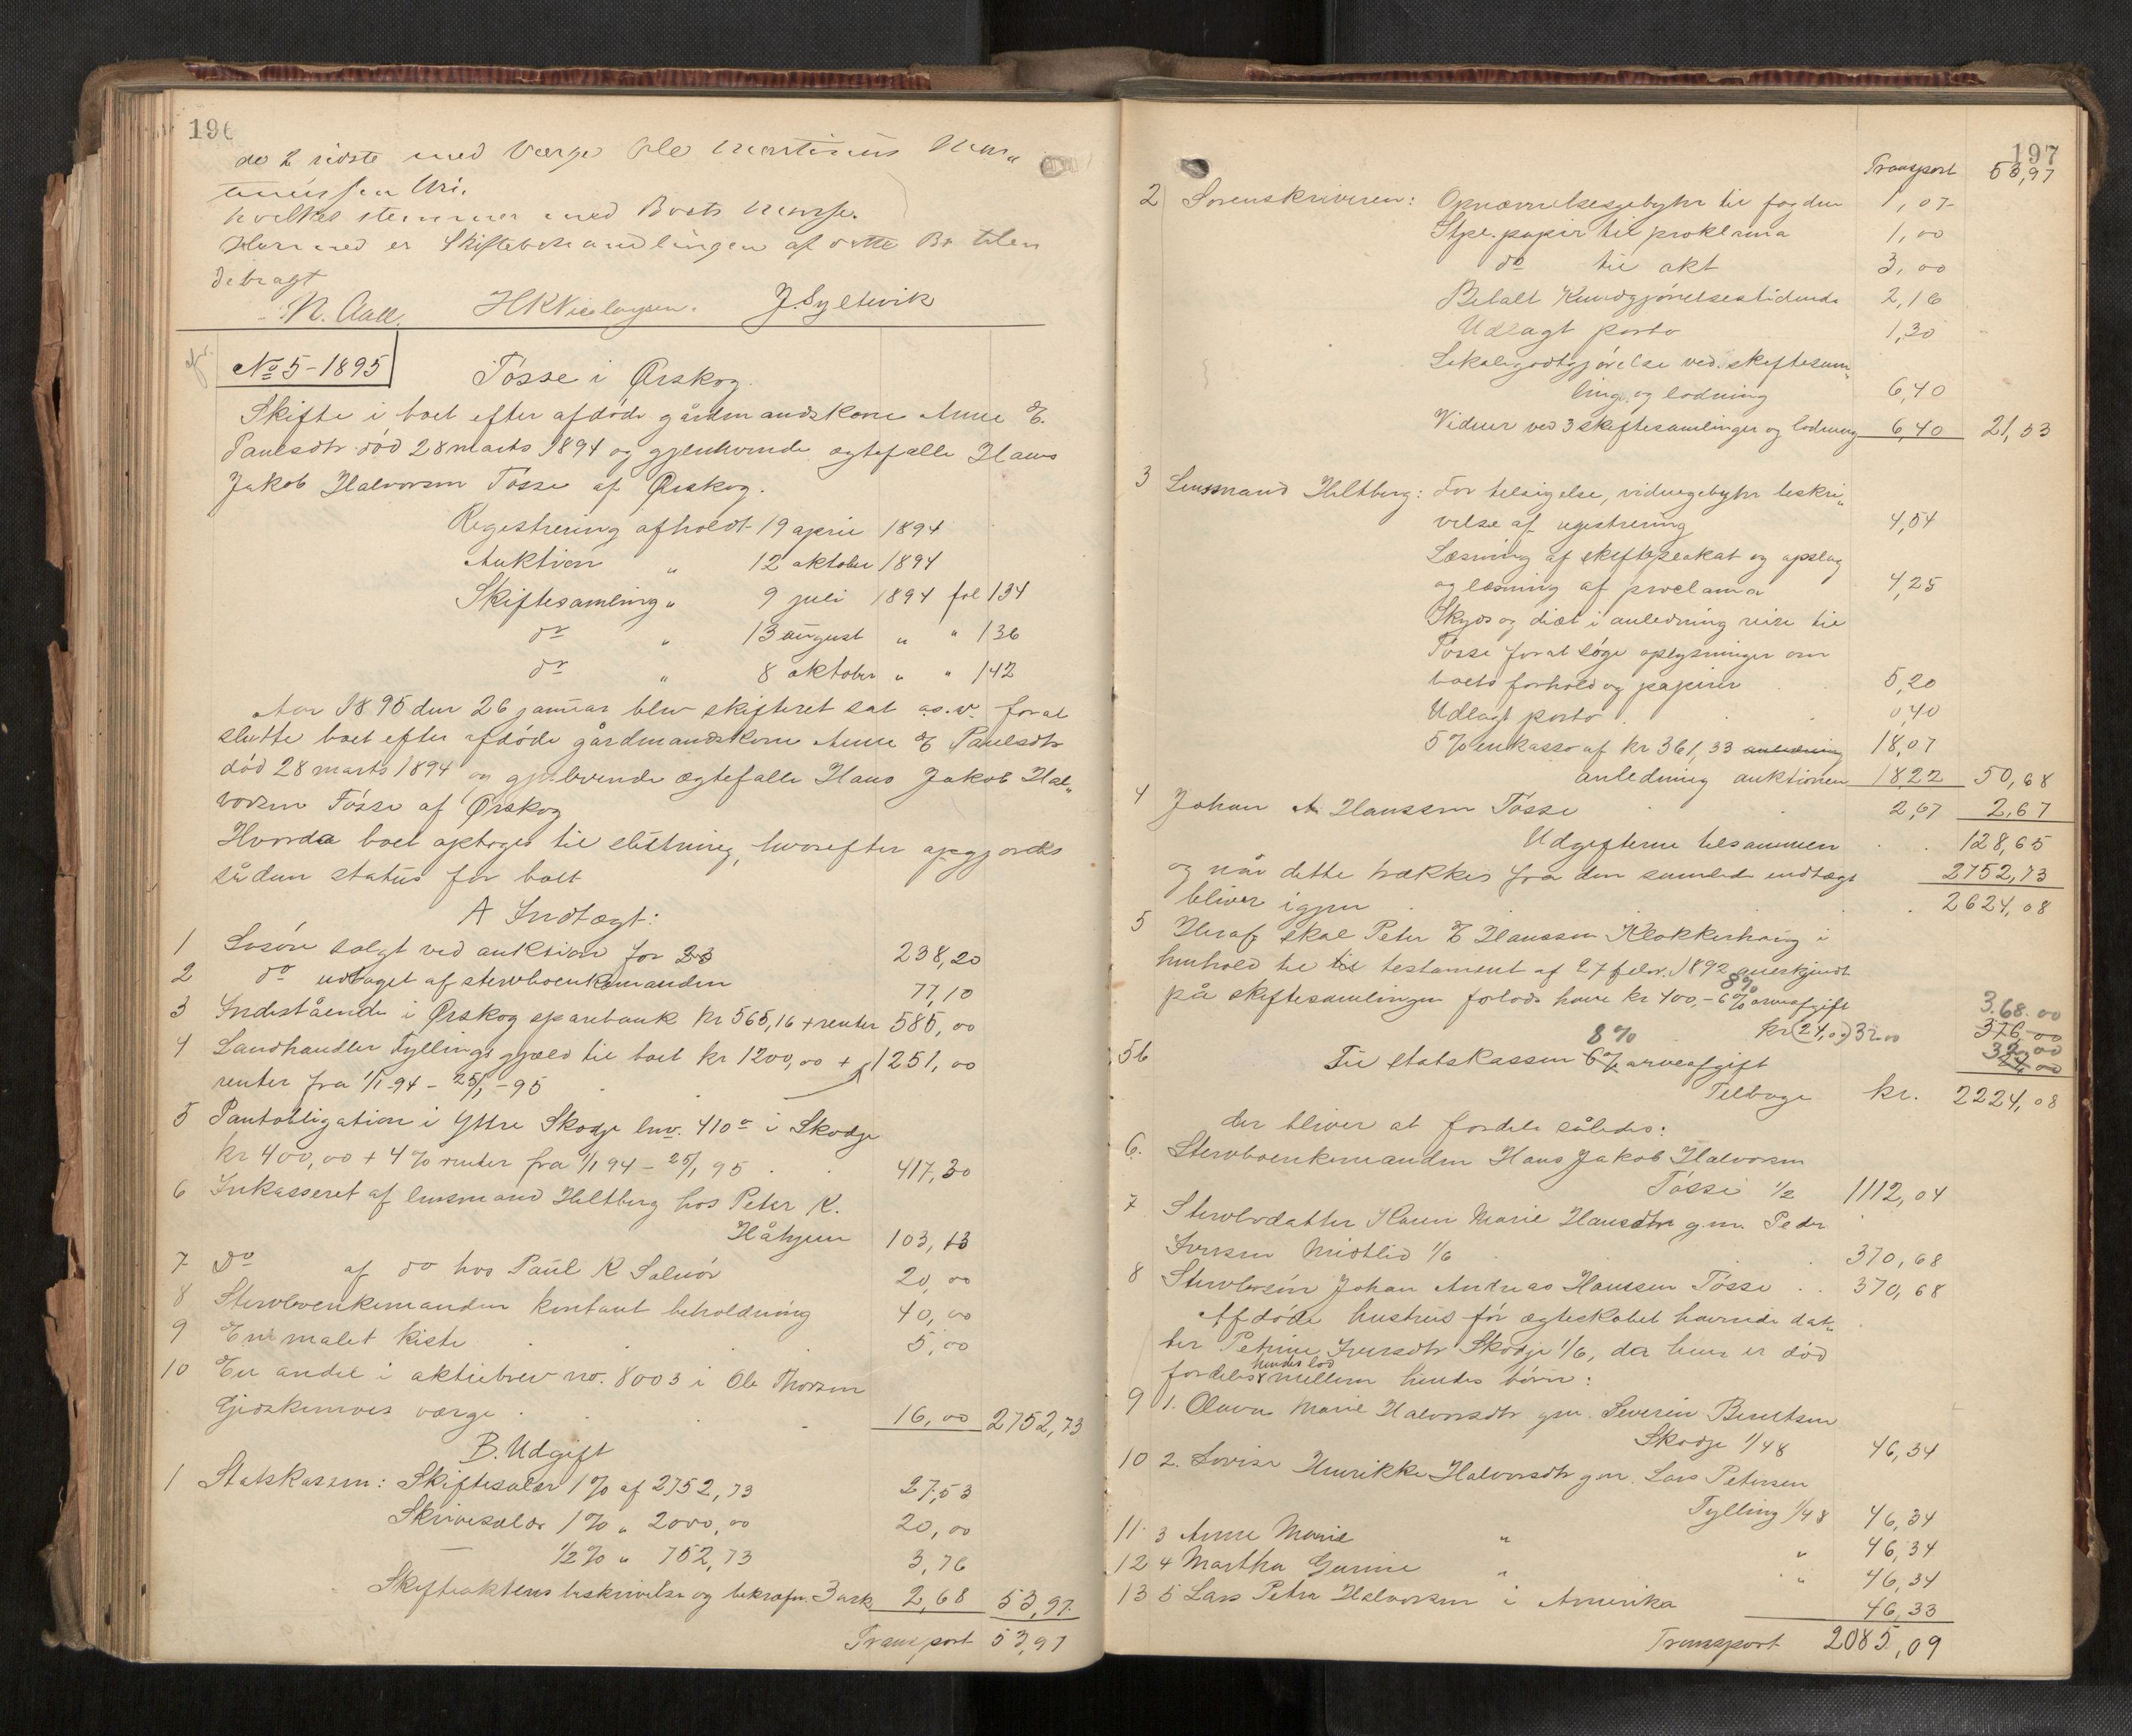 196
de 2 sidste med Værge Ole Martinus
Uri.
hvilket stemmer med Boets Masse.
Hermed er Skiftebehandlingen af dette Bo tilen
debragt
N. Aall. HKNicolaysen. J. Syltevik
No 5 - 1895
Tösse i Ørskog.
Skifte i boet efter afdöde gårdmandskone Anne E.
Paulsdtr död 28 marts 1894 og gjenlevende ægtefælle Hans
Jakob Halvorsen Tösse af Ørskog.
Registrering afholdt 19 april 1894
Auktion " 12 oktober 1894
Skiftesamling " 9 juli 1894 fol 134
do " 13 august " " 136
do " 8 oktober " " 142
Aar 1895 den 26 januar blev skifteret sat a.s.v. for at
slutte boet efter afdöde gårdmandskone Anne E Paulsdtr
död 28 marts 1894 og gjenlevende ægtefælle Hans Jakob Hal„
vorsen Tösse af Ørskog
Hvorda boet optoges til slutning, hvorefter opgjordes
sådan status for boet
A Indtægt:
1 Lösöre solgt ved auktion for 238,20
2 do udtaget af stervboenkemanden 77,10
3 Indestående i Ørskog sparebank kr 565,16 + renter 585,00
4 Landhandler Tyllings gjæld til boet kr 1200,00 + 1251,00
renter fra 1/1-94 - 25/1-95
5 Pantobligation i Yttre Skodje lnv. 410 i Skodje
kr 400,00 + 4% renter fra 1/1 94 - 25/1 95 . . 417,30
6 Inkasseret af lensmand Heltberg hos Peter K.
Håhjem 103,13
7 Do af do hos Paul K Solnör 20,00
8 Stervboenkemanden kontant beholdning 40,00
9 En malet kiste . . 5,00
10 En andel i aktiebrev no. 8003 i Ole Thorsen
Gjöskemoes værge . . . 16,00 2752,73
B. Udgift
1 Statskassen: Skiftesalær 1% af 2752,73 27,53
Skriversalær 1% " 2000,00 20,00
1/2% " 752,73 3,76
Skifteaktens beskrivelse og bekræfn. 3 ark 2,68 53,97
Transport 53,97
197
Transport 53,97
2 Sorenskriveren: Opnævnelsesgebyhr til fogden 1,07
Stpl. papir til proklama 1,00
do til akt 3,00
Betalt Kundgjörelsestidende 2,16
Udlagt porto 1,30
Lokalegodtgjörelse ved skiftesam„
ling og lodning 6,40
Vidner ved 3 skiftesamlinger og lodning 6,40 21,33
3 Lensmand Heltberg: For tilsigelse, vidnegebyhr beskri„
velse af registrering 4,54
Læsning af skifteplakat og opslag
og læsning af proclama 4,25
Skyds og diæt i anledning reise til
Tösse for at söge oplysninger om
boets forhold og papirer . . 5,20
Udlagt porto . . 0,40
5% inkasso af kr 361,33 anledning 18,07
anledning auktionen 18,22 50,68
4 Johan A Hanssen Tösse . 2,67 2,67
Udgifterne tilsammen . . 128,65
og når dette trækkes fra den samlede indtægt 2752,73
bliver igjen . . 2624,08
5 Heraf skal Peter E Hanssen Klokkerhaug i
henhold til testament af 27 febr. 1892 anerkjendt
8%
på skiftesamlingen forlods have kr 400,- 6% arveafgift 368.00
kr (24,00) 32.00 376,00
8% 32,00
5b Til statskassen 6% arveafgift 24,00
Tilbage kr. 2224,08
der bliver at fordele således:
6. Stervboenkemanden Hans Jakob Halvorsen
Tösse 1/2 1112,04
7 Stervbodatter Karen Marie Hansdtr gm. Peder
Iversen Midtlid 1/6 . . 370,68
8 Stervbosön Johan Andreas Hanssen Tösse . . 370,68
Afdöde hustrus för ægteskabet havende dat„
ter Petrine Iversdtr Skodje 1/6, da hun er död
hendes lod
fordeles mellem hendes börn:
9 1. Olava Marie Halvorsdtr gm. Severin Berntsen
Skodje 1/48 46,34
10 2. Lovise Henrikke Halvorsdtr gm. Lars Petersen
Tylling 1/48 46,34
11 3 Anne Marie " " 46,34
12 4 Martha Gurine " " 46,34
13 5 Lars Petra Halvorsen i Amerika 46,33
Transport 2085,09